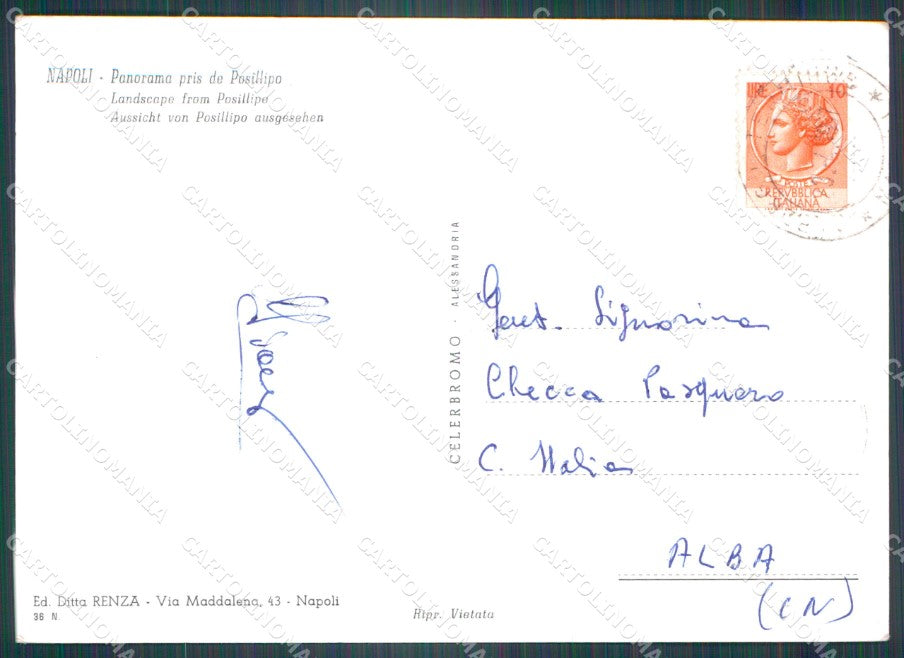 NAPOLI - Panorama pris de Posillipo
Landscape from Posillipo
Aussicht von Posillipo ausgesehen
LIRE 10
POSTE
REPVBBLICA
ITALIANA
CELERBROMO - ALESSANDRIA
Gent. Signorina
Checca Pasquero
C. Italia
ALBA
(CN)
Ed. Ditta RENZA - Via Maddalena, 43 - Napoli
36 N
Ripr. Vietata
CARTOLINOMANIA